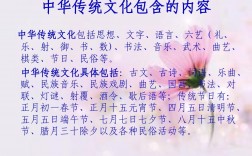 中华传统文化包含的内容
中华传统文化包括思想、文字、语言、六艺（礼、
乐、射、御、书、数）、书法、音乐、武术、曲艺、
棋类、节日、民俗等。
中华传统文化具体包括：古文、古诗、词语、乐曲、
赋、民族音乐、民族戏剧、曲艺、国画、书法、对
联、灯谜、射覆、酒令、歇后语等；传统节日有：
正月初一春节、正月十五元宵节、四月五日清明节、
五月五日端午节、七月七日七夕节、八月十五中秋
节、腊月三十除夕以及各种民俗活动等。